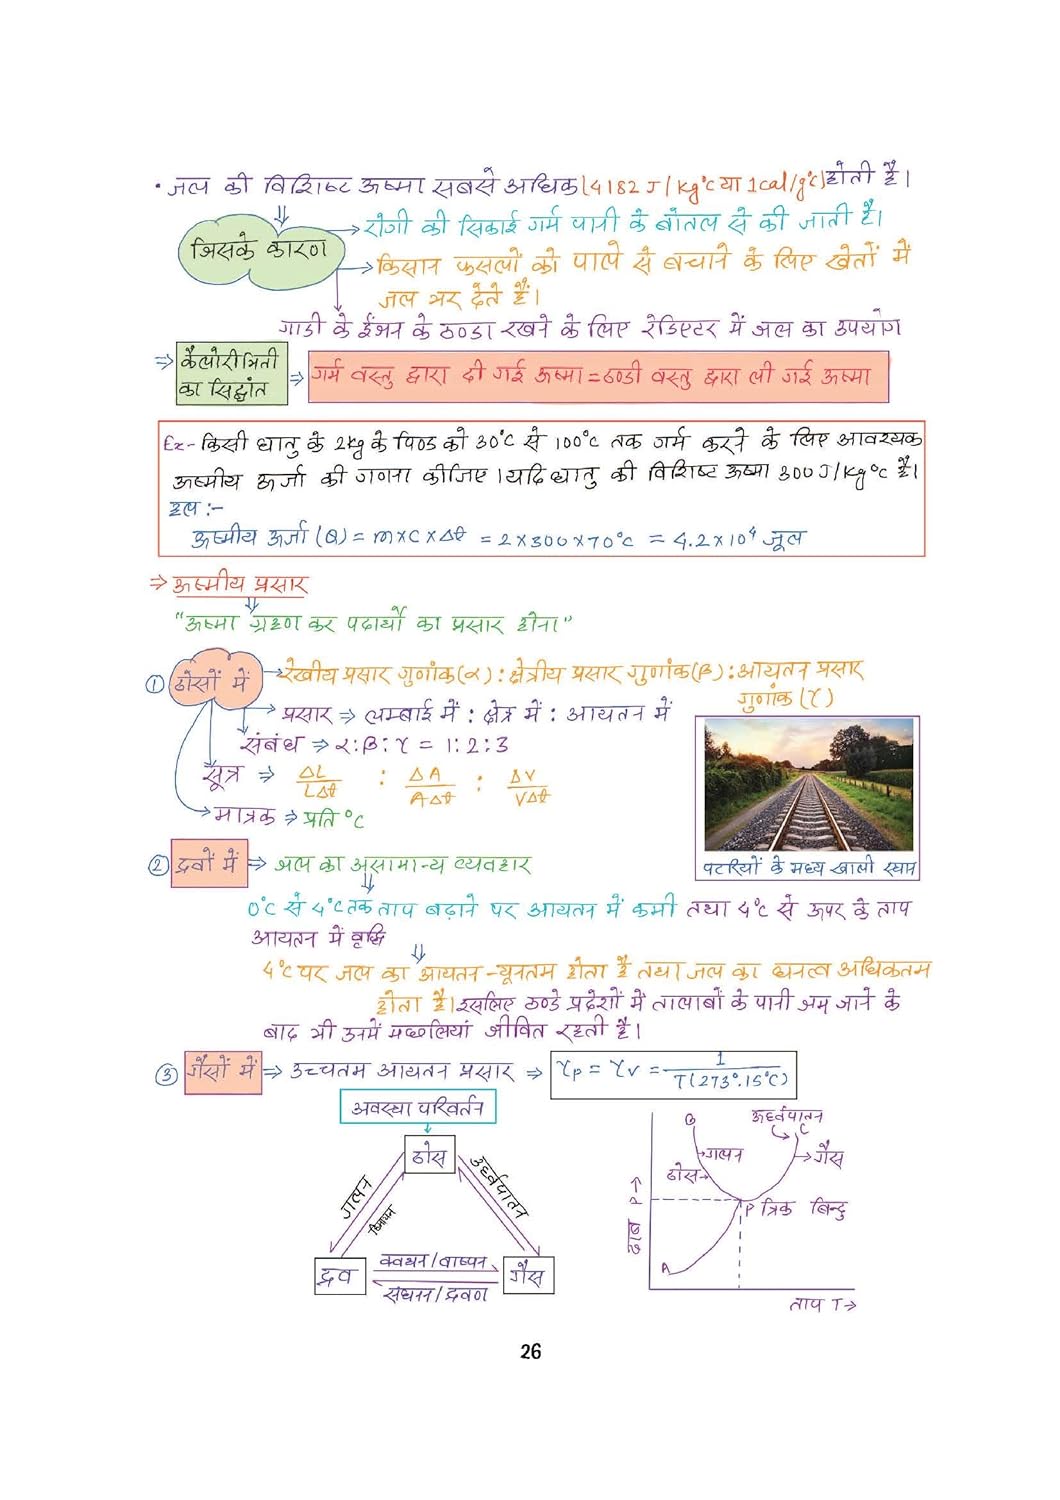 • जल की विशिष्ट ऊष्मा सबसे अधिक (4182 J/kg°C या 1cal/g°C) होती है।
जिसके कारण
→ रोगी की सिकाई गर्म पानी के बोतल से की जाती है।
→ किसान फसलों को पाले से बचाने के लिए खेतों में
जल भर देते हैं।
गाडी के ईंजन के ठण्डा रखने के लिए रेडिएटर में जल का उपयोग
⇒ कैलोरीमिती
का सिद्धांत
⇒ गर्म वस्तु द्वारा दी गई ऊष्मा = ठण्डी वस्तु द्वारा ली गई ऊष्मा
Ex- किसी धातु के 2kg के पिण्ड को 30°C से 100°C तक गर्म करने के लिए आवश्यक
ऊष्मीय ऊर्जा की गणना कीजिए। यदि धातु की विशिष्ट ऊष्मा 300 J/kg°C है।
हल :-
ऊष्मीय ऊर्जा (Q) = m×c×Δθ = 2×300×70°C = 4.2×10⁴ जूल
⇒ ऊष्मीय प्रसार
"ऊष्मा ग्रहण कर पदार्थो का प्रसार होना"
① ठोसों में → रेखीय प्रसार गुणांक(α) : क्षेत्रीय प्रसार गुणांक(β) : आयतन प्रसार
गुणांक (γ)
→ प्रसार ⇒ लम्बाई में : क्षेत्र में : आयतन में
संबंध ⇒ α:β:γ = 1:2:3
सूत्र ⇒ ΔL/LΔθ : ΔA/AΔθ : ΔV/VΔθ
→ मात्रक ⇒ प्रति °C
पटरियों के मध्य खाली स्थान
② द्रवों में ⇒ जल का असामान्य व्यवहार
0°C से 4°C तक ताप बढ़ाने पर आयतन में कमी तथा 4°C से ऊपर के ताप
आयतन में वृद्धि
4°C पर जल का आयतन न्यूनतम होता है तथा जल का घनत्व अधिकतम
होता है। इसलिए ठण्डे प्रदेशों में तालाबों के पानी जम जाने के
बाद भी उनमें मछलियां जीवित रहती है।
③ गैसों में ⇒ उच्चतम आयतन प्रसार ⇒ γp = γv = 1/T(273°.15°C)
अवस्था परिवर्तन
ठोस
गलन
हिमायन
उर्ध्वपातन
द्रव
क्वथन/वाष्पन
संघनन/द्रवण
गैस
B
ऊर्ध्वपातन
C
→गलन
→गैस
ठोस→
P त्रिक बिन्दु
दाब P→
A
ताप T→
26